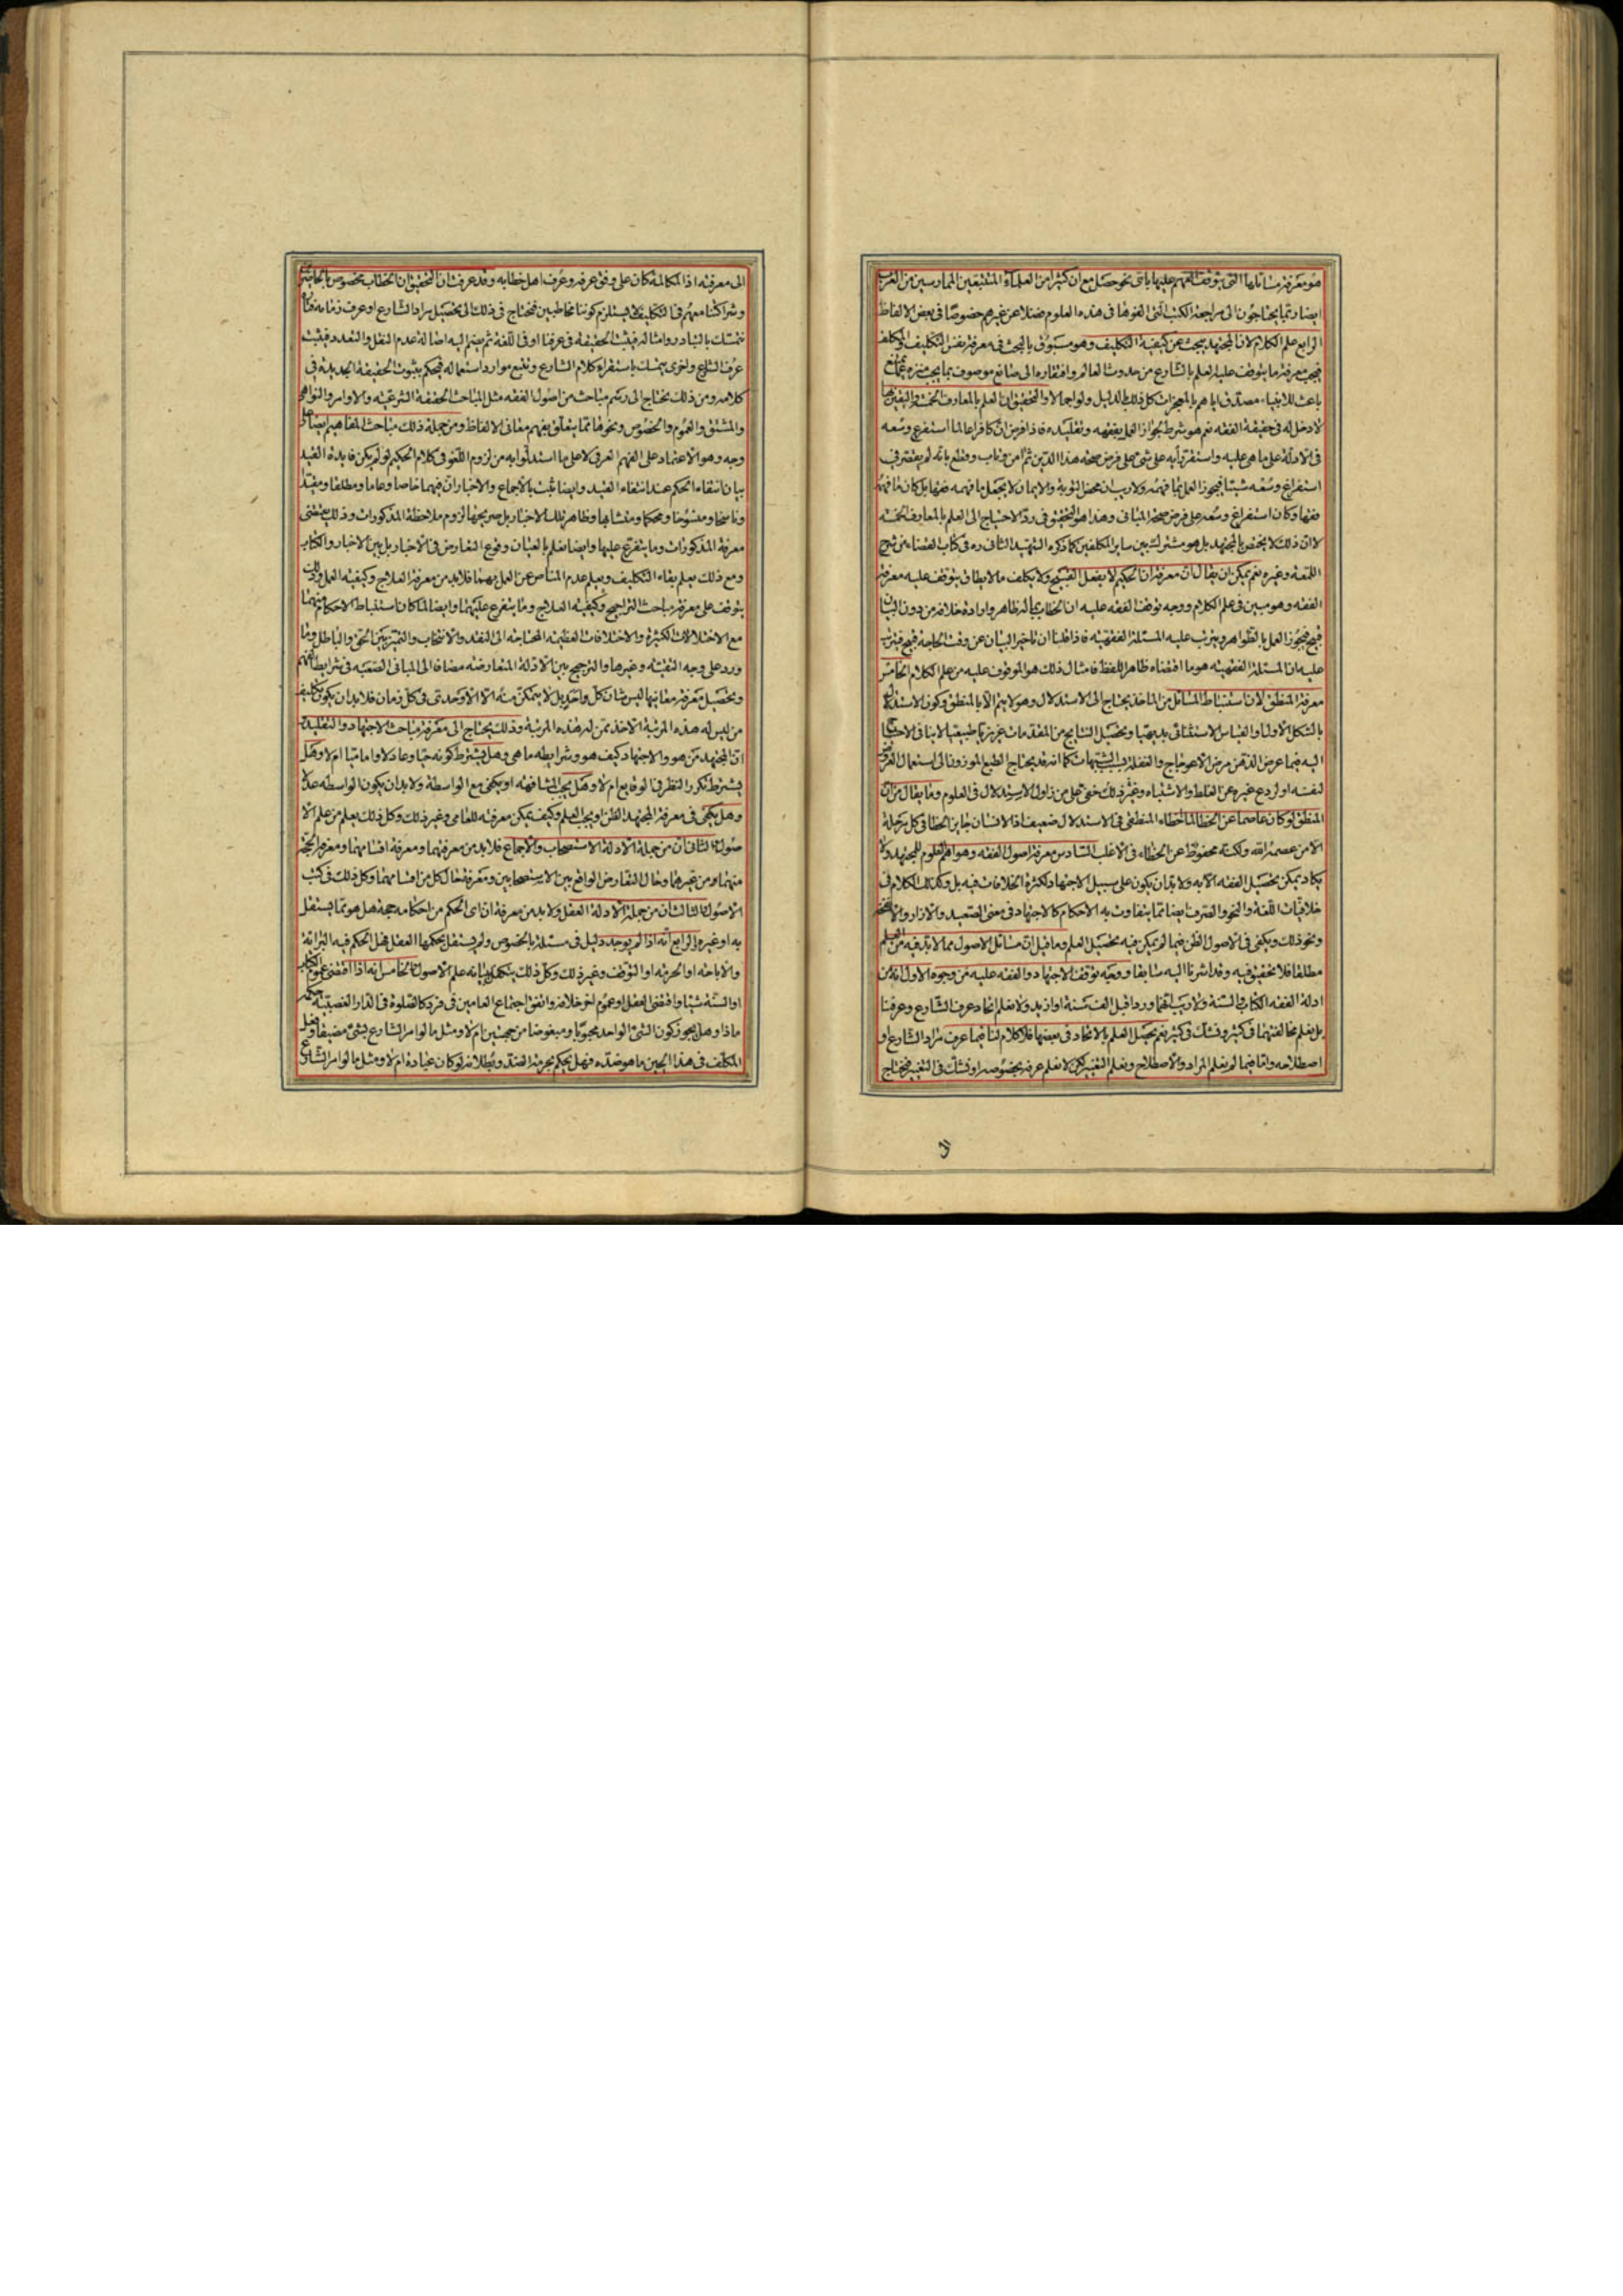 هو معرفة مسائلها التى يتوقف الفهم عليها باى نحو حصل مع ان كثيرا من العلماء المتتبعين الممارسين من العرب
ايضا ربما يحتاجون الى مراجعة الكتب التى الفوها فى هذه العلوم فضلا عن غيرهم خصوصا فى بعض الالفاظ
الرابع علم الكلام لان المجتهد يبحث عن كيفية التكليف وهو مسبوق بالبحث فى معرفة نفس التكليف والمكلف
فيجب معرفة ما يتوقف عليه العلم بالشارع من حدوث العالم وافتقاره الى صانع موصوف بما يجب منزه عما يمتنع
باعث للانبياء مصدق اياهم بالمعجزات كل ذلك بالدليل ولو اجمالا والتحقيق ان العلم بالمعارف الخمس واليقين بها
لا دخل له فى حقيقة الفقه نعم هو شرط لجواز العمل بفقهه وتقليده فاذا فرض ان كافرا عالما استفرغ وسعه
فى الادلة على ما هى عليه واستقر رأيه على شئ على فرض صحة هذا الدين ثم امن وتاب وقطع بانه لم يقصر فى
استفراغ وسعه شيئا فيجوز العمل بما فهمه ولا ريب ان محض التوبة والايمان لا يجعل ما فهمه فقها بل كان ما فهمه
فقها وكان استفراغ وسعه على فرض صحة المبانى وهذا هو التحقيق فى رد الاحتياج الى العلم بالمعارف الخمسة
لا ان ذلك لا يختص بالمجتهد بل هو مشترك بين ساير المكلفين كما ذكره الشهيد الثانى ره فى كتاب القضاء من شرح
اللمعة وغيره نعم يمكن ان يقال ان معرفة ان الحكيم لا يفعل القبيح ولا يكلف ما لا يطاق يتوقف عليه معرفة
الفقه وهو مبين فى علم الكلام ووجه توقف الفقه عليه ان الخطاب بما له ظاهر وارادة خلافه من دون البيان
قبيح فيجوز العمل بالظواهر ويترتب عليه المسئلة الفقهية فاذا قلنا ان تاخير البيان عن وقت الحاجة قبيح فيترتب
عليه ان المسئلة الفقهية هو ما اقتضاه ظاهر اللفظ فامثال ذلك هو الموقوف عليه من علم الكلام الخامس
معرفة المنطق لان استنباط المسائل من الماخذ يحتاج الى الاستدلال وهو لا يتم الا بالمنطق وكون الاستدلال
بالشكل الاول والقياس الاستثنائى بديهيا وتحصيل النتايج من المقدمات غريزيا طبيعيا لا ينافى الاحتياج
اليه فيما عرض الذهن مرض الاعوجاج والغفلة بسبب الشبهات كما انه قد يحتاج الطبع الموزون الى استعمال العروض
لنفسه او لردع غيره عن الغلط والاشتباه وغير ذلك خفى جلى من زاول الاستدلال فى العلوم وما يقال من ان
المنطق لو كان عاصما عن الخطا لما اخطاء المنطقى فى الاستدلال ضعيف اذ الانسان جايز الخطا فى كل مرحلة
الا من عصمه الله ولكنه محفوظ عن الخطاء فى الاغلب السادس معرفة اصول الفقه وهو اهم العلوم للمجتهد ولا
يكاد يمكن تحصيل الفقه الا به ولا بد ان يكون على سبيل الاجتهاد لكثرة الخلافات فيه بل وكذلك الكلام فى
خلافيات اللغة والنحو والصرف ايضا مما يتفاوت به الاحكام كالاجتهاد فى معنى الصعيد والازار
ونحو ذلك ويكفى فى الاصول الظن فيما لم يمكن فيه تحصيل العلم وما قيل ان مسائل الاصول مما لا بد فيه من العلم
مطلقا فلا تحقيق فيه وقد اشرنا اليه سابقا ووجه توقف الاجتهاد والفقه عليه من وجوه الاول انه من
ادلة الفقه الكتاب والسنة ولا ريب انهما وردا قبل الف سنة او ازيد ولا نعلم اتحاد عرف الشارع وعرفنا
بل نعلم مخالفتهما فى كثير ونشك فى كثير نعم يحصل العلم بالاتحاد فى بعضها فلا كلام لنا فيما عرف مراد الشارع او
اصطلاحه واما فيما لم نعلم المراد والاصطلاح ونعلم التغير لكن لا نعلم عرفه بخصوصه او نشك فى التغير فيحتاج
الى
الى معرفته اذ المكالمة كان على وفق عرفه وعرف اهل خطابه وقد عرفت ان التحقيق ان الخطاب مخصوص بالحاضرين
وشراكتنا معهم فى التكليف لا يستلزم كوننا مخاطبين فنحتاج فى ذلك الى تحصيل مراد الشارع او عرف زمانه
نتمسك بالتبادر وامثاله فيثبت الحقيقة فى عرفنا او فى اللغة ثم يضم اليه اصالة عدم النقل والتعدد فيثبت
عرف الشارع واخرى نتمسك باستقراء كلام الشارع وتتبع موارد استعماله فيحكم بثبوت الحقيقة الجديدة فى
كلامه ومن ذلك يحتاج الى رسم مباحث من اصول الفقه مثل المباحث الحقيقة الشرعية والاوامر والنواهى
والمشتق والعموم والخصوص ونحوها مما يتعلق بفهم معانى الالفاظ ومن جملة ذلك مباحث المفاهيم ايضا على
وجه وهو الاعتماد على الفهم العرفى لا على ما استدلوا به من لزوم اللغو فى كلام الحكيم لو لم يكن فايدة القيد
بيان انتفاء الحكم عند انتفاء القيد وايضا ثبت بالاجماع والاخبار ان فيهما خاصا وعاما ومطلقا ومقيدا
وناسخا ومنسوخا ومحكما ومتشابها وظاهر تلك الاخبار بل صريحها لزوم ملاحظة المذكورات وذلك يقتضى
معرفة المذكورات وما يتفرع عليها وايضا نعلم بالعيان وقوع التعارض فى الاخبار بل بين الاخبار والكتاب
ومع ذلك يعلم بقاء التكليف ويعلم عدم المناص عن العمل بهما فلا بد من معرفة العلاج وكيفية العمل وذلك
يتوقف على معرفة مباحث التراجيح وكيفية العلاج وما يتفرع عليهما وايضا لما كان استنباط الاحكام منهما
مع الاختلالات الكثيرة والاختلافات العظيمة المحتاجة الى النقد والانتخاب والتميز بين الحق والباطل وما
ورد على وجه التقية وغيرها والترجيح بين الادلة المتعارضة مضافا الى المبانى الصعبة فى شرايط الفهم
وتحصيل معرفة معانيها ليس شان كل واحد بل لا يتمكن منه الا الاوحدى فى كل زمان فلا بد ان يكون تكليف
من ليس له هذه المرتبة الاخذ ممن له هذه المرتبة وذلك يحتاج الى معرفة مباحث الاجتهاد والتقليد
ان المجتهد من هو والاجتهاد كيف هو وشرايطه ما هى وهل يشترط كونه حيا وعادلا واماميا ام لا وهل
يشترط تكرر النظر فى الوقايع ام لا وهل يجب المشافهة او يكفى مع الواسطة ولا بد ان يكون الواسطة عدلا
وهل يكفى فى معرفة المجتهد الظن او يجب العلم وكيف يمكن معرفته للعامى وغير ذلك وكل ذلك يعلم من علم الا
صول الثانى ان من جملة الادلة الاستصحاب والاجماع فلا بد من معرفتهما ومعرفة اقسامهما ومعرفة الحجة
منهما ومن غيرهما وحال التعارض الواقع بين الاستصحابين ومعرفة حال كل من اقسامهما وكل ذلك فى كتب
الاصول الثالث ان من جملة الادلة العقل ولا بد من معرفة ان اى الحكم من احكامه حجة هل هو مما يستقل
به او غيره الرابع انه اذا لم يوجد دليل فى مسئلة بالخصوص ولم يستقل بحكمها العقل فهل الحكم فيه البرائة
والاباحة او الحرمة او التوقف وغير ذلك وكل ذلك يتكفل ببيانه علم الاصول الخامس انه اذا اقتضى عموم الكتاب
او السنة شيئا واقتضى العقل او عموم اخر خلافه واتفق اجتماع العامين فى فرد كالصلوة فى الدار الغصبية حكمه
ماذا وهل يجوز كون الشئ الواحد محبوبا ومبغوضا من جهتين ام لا ومثل ما لو امر الشارع بشئ مضيقا وفعل
المكلف فى هذا الحين ما هو ضده فهل يحكم بحرمة الضد وبطلانه لو كان عبادة ام لا ومثل ما لو امر الشارع